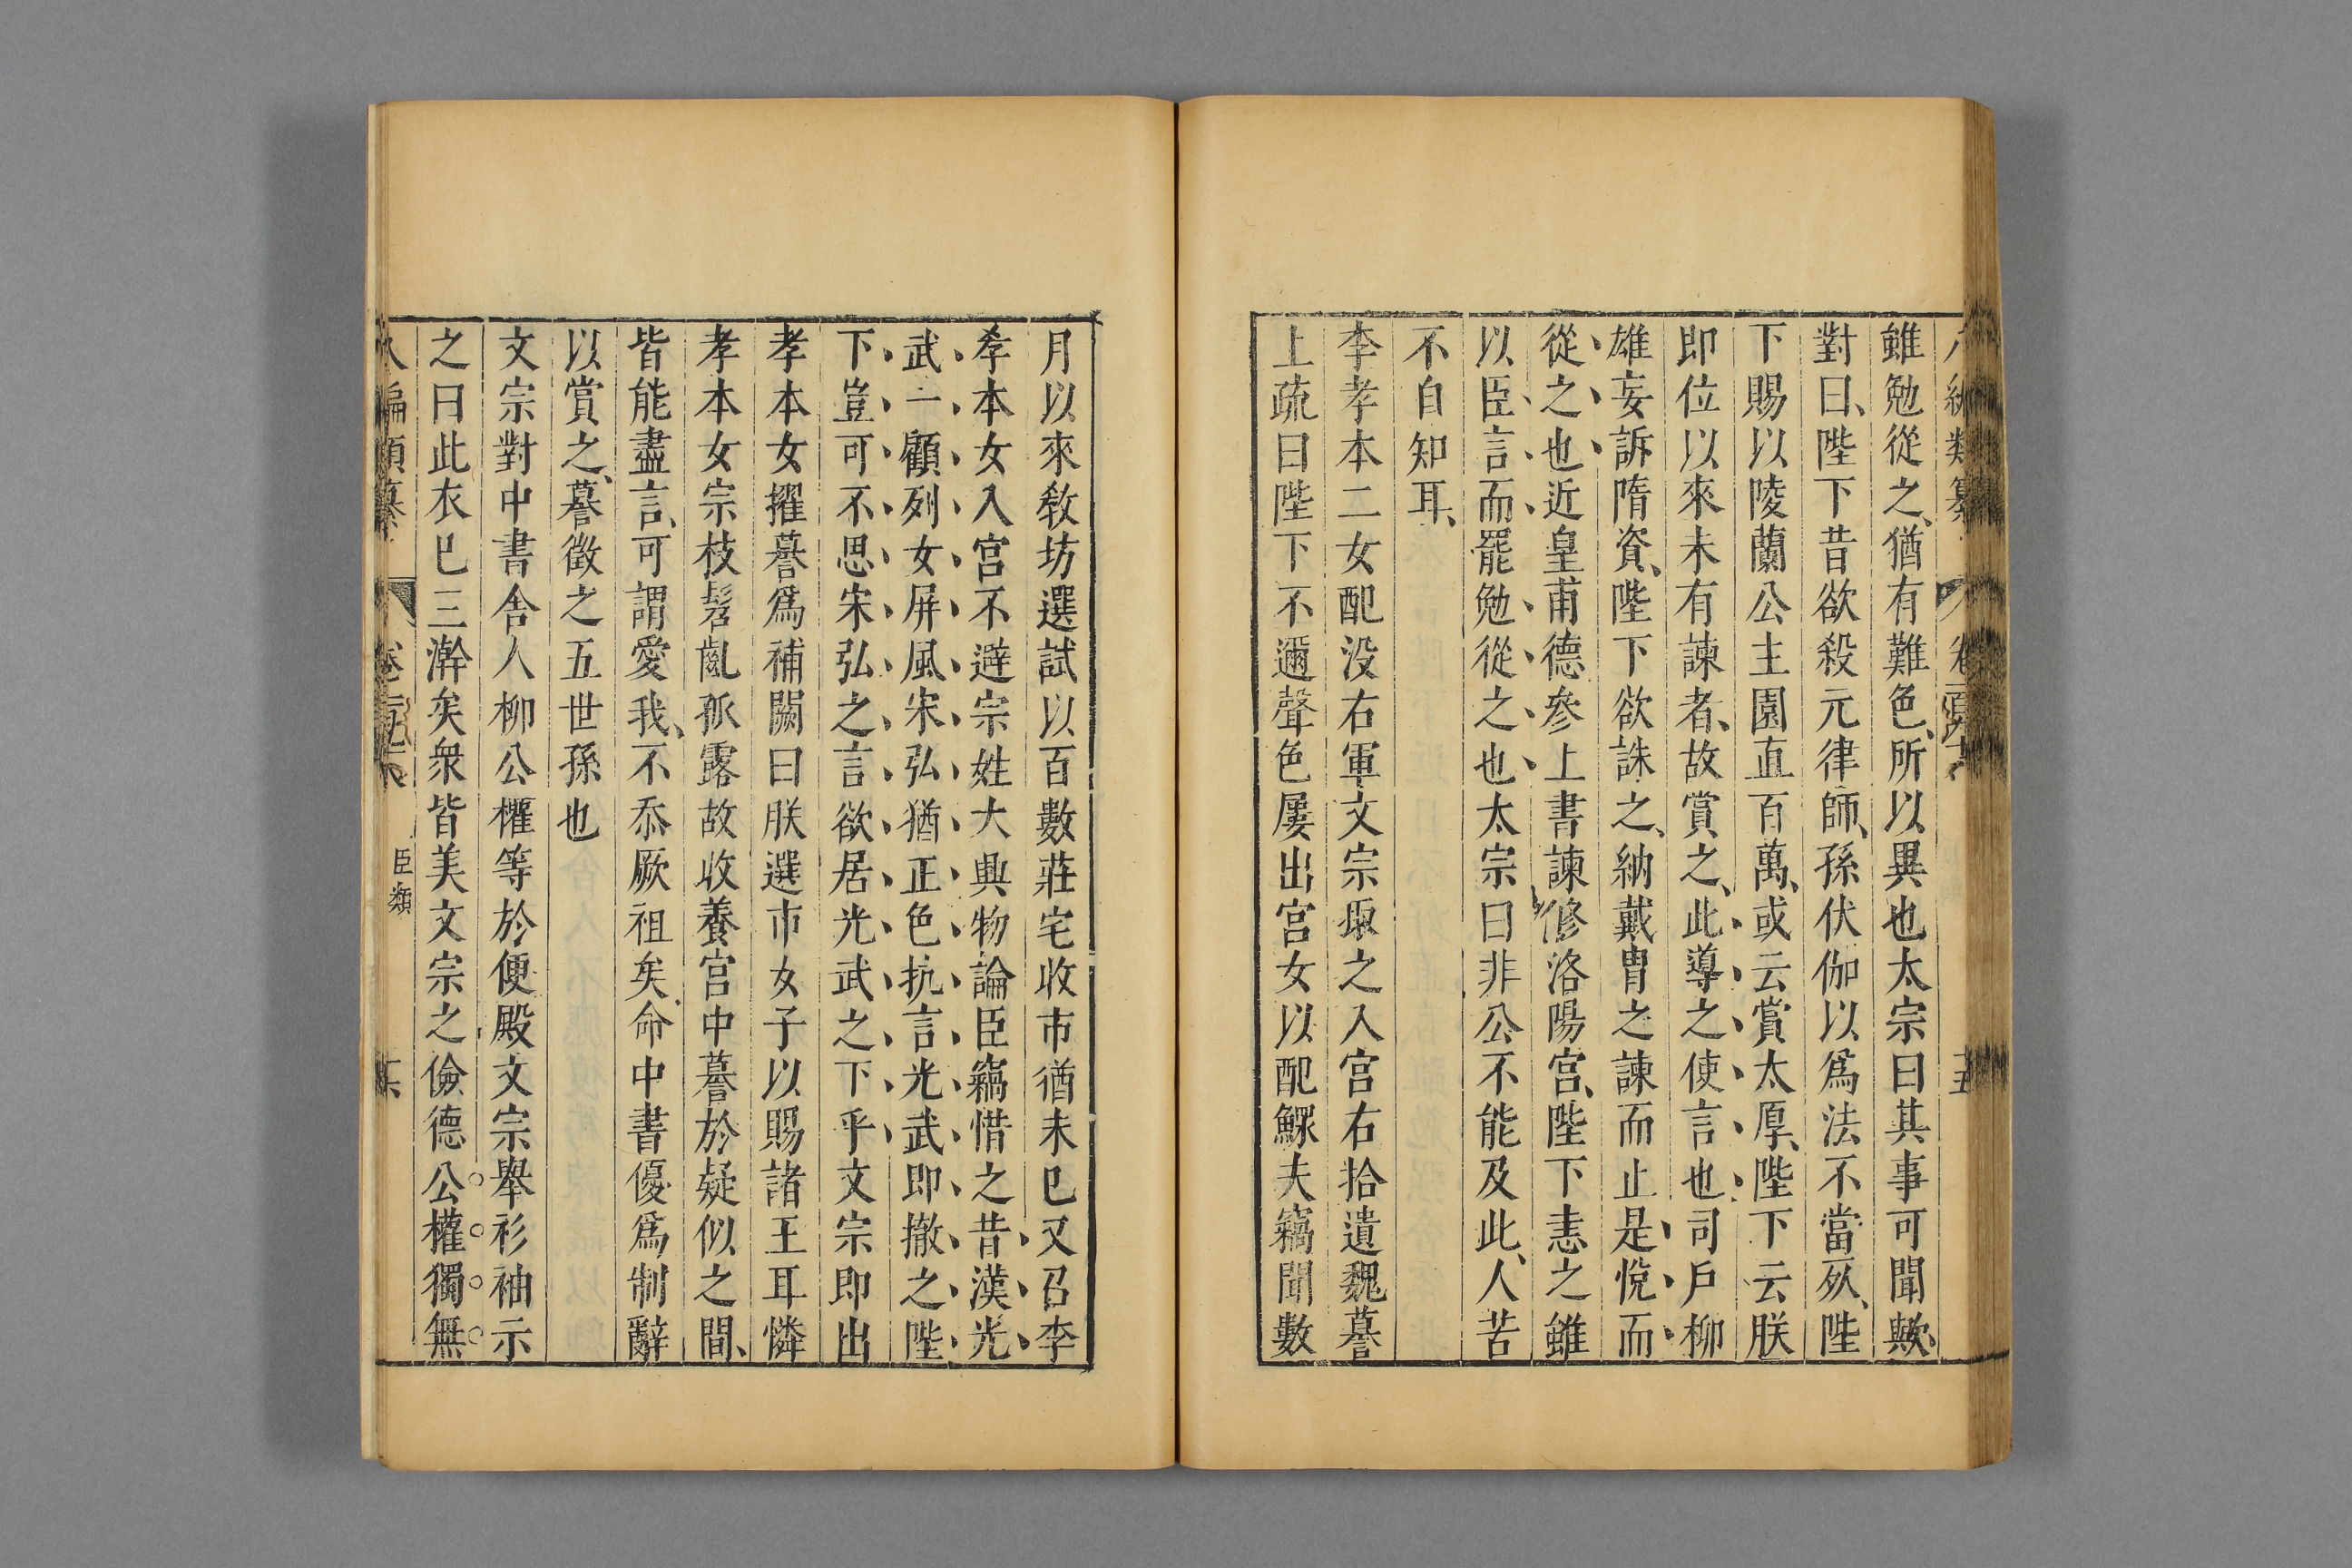 雖勉從之、猶有難色、所以異也太宗曰其事可聞歟、
對曰、陛下昔欲殺元律師、孫伏伽以爲法不當死、陛
下賜以陵蘭公主園直百萬、或云賞太厚、陛下云朕
即位以來未有諫者、故賞之、此導之使言也司戶柳
雄妄訴隋資、陛下欲誅之、納戴胄之諫而止是悅而
從之也近皇甫德參上書諫修洛陽宮、陛下恚之雖
以臣言而罷勉從之也太宗曰非公不能及此、人苦
不自知耳、
李孝本二女配没右軍文宗取之入宮右拾遺魏謩
上疏曰陛下不邇聲色屢出宮女以配鰥夫竊聞數
月以來敎坊選試以百數莊宅收市猶未已又召李
孝本女入宮不避宗姓大興物論臣竊惜之昔漢光
武一顧列女屏風宋弘猶正色抗言光武即撤之陛
下豈可不思宋弘之言欲居光武之下乎文宗即出
孝本女擢謩爲補闕曰朕選市女子以賜諸王耳憐
孝本女宗枝髫齓孤露故收養宮中謩於疑似之間、
皆能盡言、可謂愛我、不忝厥祖矣命中書優爲制辭
以賞之、謩徵之五世孫也
文宗對中書舍人柳公權等於便殿文宗舉衫袖示
之曰此衣已三澣矣衆皆美文宗之儉德公權獨無
臣類